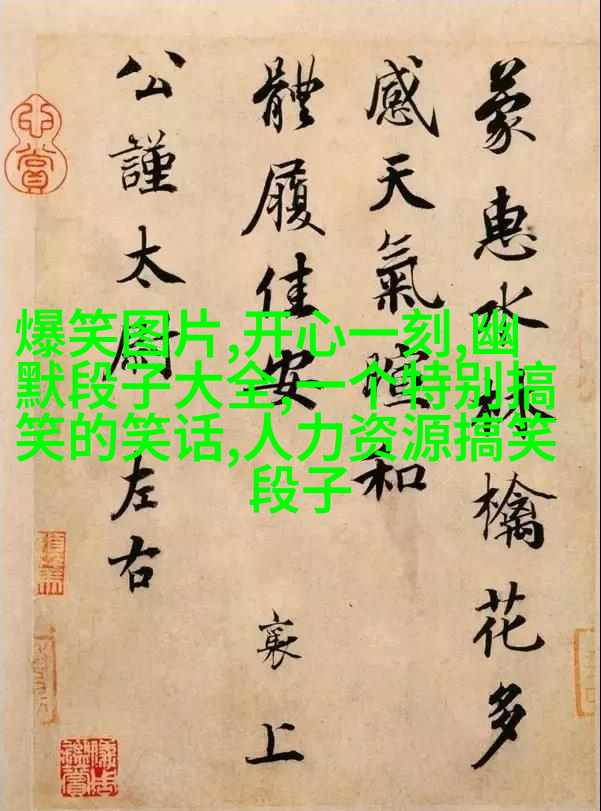 爆笑图片,开心一刻,幽
默段子大全,一个特别搞
笑的笑话,人力资源搞笑
段子
蒙惠水林檎花多
感天氣暄和
體履佳安 襄上
公謹太尉左右